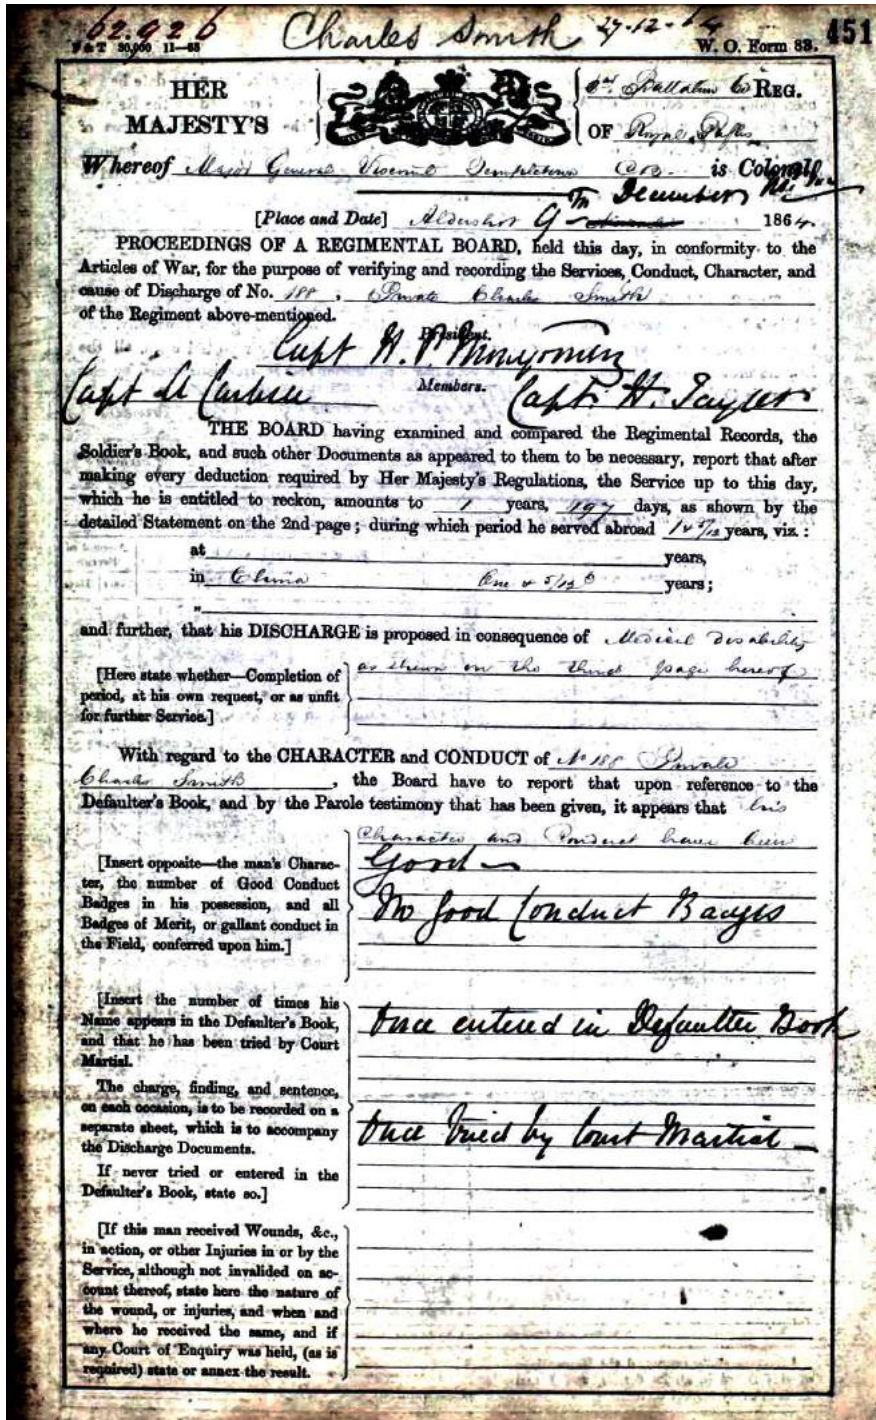 62.926 Charles Smith 27-12-64 451
P & T 30,000 11—63 W. O. Form 83.
HER Battalion 60 REG.
MAJESTY'S OF Royal Rifles
Whereof Major General Viscount Templetown CB. is Colonel
December
[Place and Date] Aldershot 9th 1864
PROCEEDINGS OF A REGIMENTAL BOARD, held this day, in conformity to the
Articles of War, for the purpose of verifying and recording the Services, Conduct, Character, and
cause of Discharge of No. 188, Private Charles Smith
of the Regiment above-mentioned.
President.
Capt H. P Montgomery
Members.
Capt Capt. H. Taylor
THE BOARD having examined and compared the Regimental Records, the
Soldier's Book, and such other Documents as appeared to them to be necessary, report that after
making every deduction required by Her Majesty's Regulations, the Service up to this day,
which he is entitled to reckon, amounts to 1 years, 197 days, as shown by the
detailed Statement on the 2nd page; during which period he served abroad 1 & 5/12 years, viz.:
at years,
in China One & 5/12 years;
"
and further, that his DISCHARGE is proposed in consequence of Medical Disability
as shewn on the third page hereof
[Here state whether—Completion of
period, at his own request, or as unfit
for further Service.]
With regard to the CHARACTER and CONDUCT of No 188 Private
Charles Smith, the Board have to report that upon reference to the
Defaulter's Book, and by the Parole testimony that has been given, it appears that his
Character and Conduct have been
Good
[Insert opposite—the man's Charac-
ter, the number of Good Conduct
Badges in his possession, and all
Badges of Merit, or gallant conduct in
the Field, conferred upon him.]
No Good Conduct Badges
[Insert the number of times his
Name appears in the Defaulter's Book,
and that he has been tried by Court
Martial.
Once entered in Defaulter Book
The charge, finding, and sentence,
on each occasion, is to be recorded on a
separate sheet, which is to accompany
the Discharge Documents.
Once tried by Court Martial
If never tried or entered in the
Defaulter's Book, state so.]
[If this man received Wounds, &c.,
in action, or other Injuries in or by the
Service, although not invalided on ac-
count thereof, state here the nature of
the wound, or injuries, and when and
where he received the same, and if
any Court of Enquiry was held, (as is
required) state or annex the result.